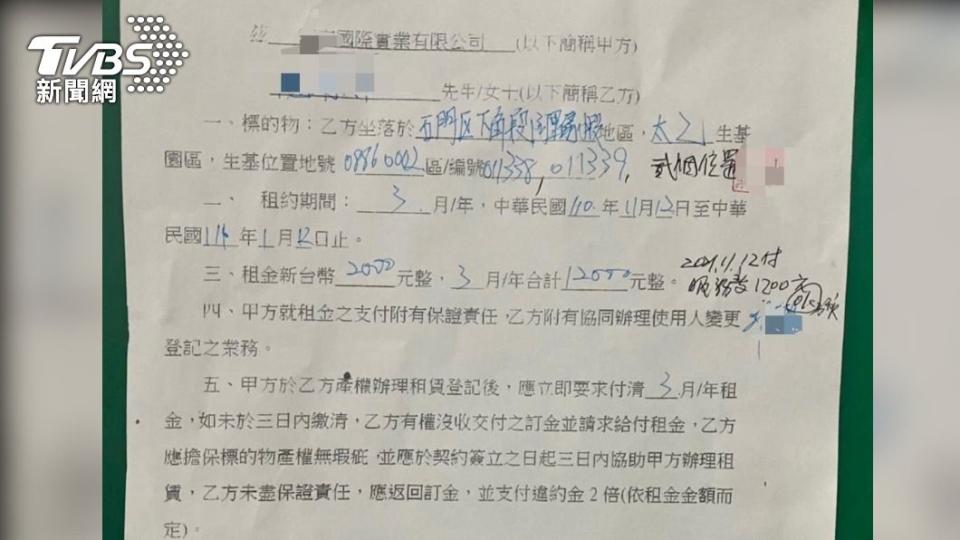 TVBS
新聞網
國際實業有限公司 (以下簡稱甲方)
先生/女士(以下簡稱乙方)
一、標的物：乙方坐落於石門区下角段 地區，太乙 生基
園區，生基位置地號 0986 0002 區/編號011338, 011339, 貳個位置
二、 租約期間： 3 月/年，中華民國110年11月12日至中華
民國 年1月12日止。
三、租金新台幣 2000 元整，3 月/年合計12000元整。 2021.11.12付
服務費1200
四、甲方就租金之支付附有保證責任，乙方附有協同辦理使用人變更
登記之業務。
五、甲方於乙方產權辦理租賃登記後，應立即要求付清 3 月/年租
金，如未於三日內繳清，乙方有權沒收交付之訂金並請求給付租金，乙方
應擔保標的物產權無瑕疵，並應於契約簽立之日起三日內協助甲方辦理租
賃，乙方未盡保證責任，應返回訂金，並支付違約金 2 倍(依租金金額而
定)。